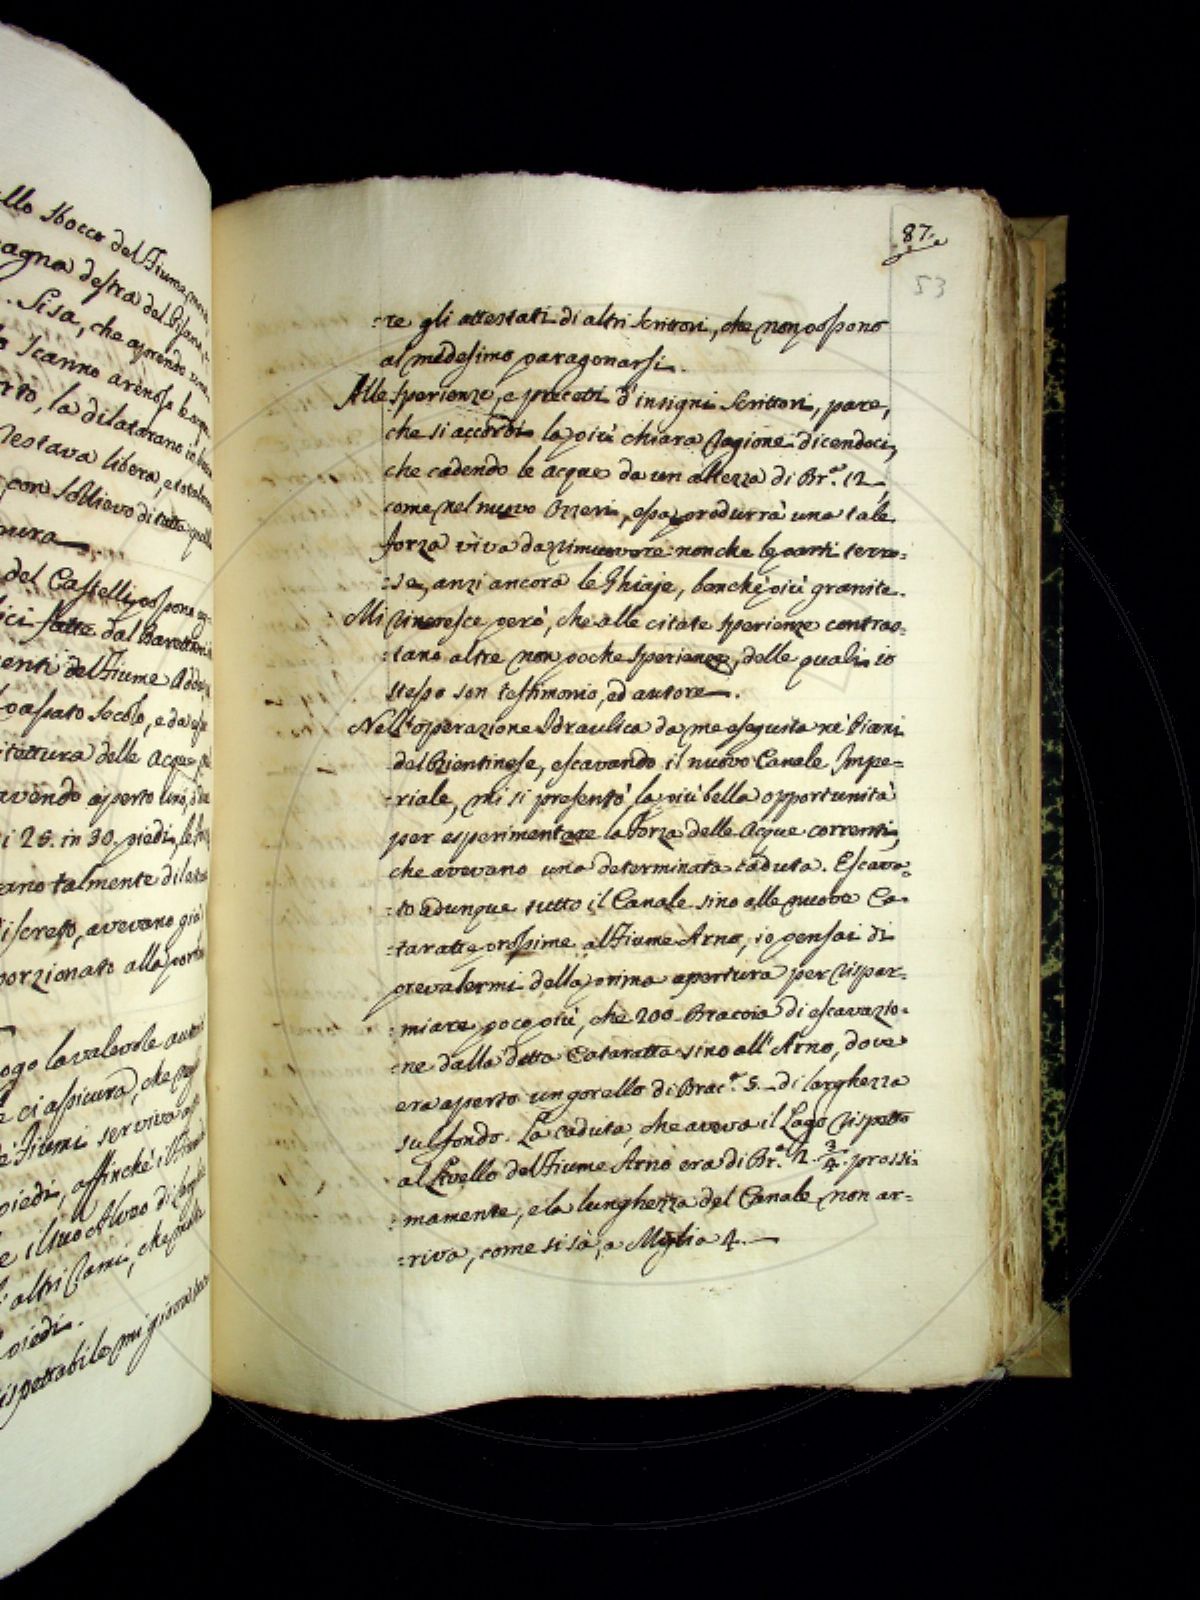 llo sbocco del Fiume
agna destra del Pisano
Pisa, che aprendo una
Scanno arenoso le acque
rto, la dilatarano in
restava libera, e totalmen
con sollievo di tutta quella
nura
del Castelli possono
ici fatte dal Barattieri
enti del Fiume Adda
passato secolo, e da esso
itettura delle acque,
avendo aperto uno,
i 25. in 30. piedi, le
ano talmente dilata
discreto, avevano già
porzionato alla porta
ogo lavalevole auto
e ci assicura, che
e Fiumi serviva
piedi, affinchè il
e il suo Alveo di
altri Rami, che
piedi.
ispettabile, mi giova
87.
53
:re gli attestati di altri Scrittori, che non possono
al medesimo paragonarsi.
Alle sperienze, e precetti d'insigni Scrittori, pare,
che si accordi la più chiara ragione dicendoci,
che cadendo le acque da un altezza di Br.ª 12,
come nel nuovo Ozzeri, essa produrrà una tale
forza viva da rimuovere non che le parti terro:
:se, anzi ancora le Ghiaje, benchè più granite.
Mi rincresce però, che alle citate sperienze contras:
:tano altre non poche sperienze, delle quali io
stesso son testimonio, ed autore.
Nell'operazione Idraulica da me eseguita ne' Piani
del Bientinese, escavando il nuovo Canale Impe=
:riale, mi si presentò la più bella opportunità
per esperimentare la Forza delle Acque correnti,
che avevano una determinata caduta. Escava:
:to adunque tutto il Canale sino alle nuove Ca:
:taratte prossime al Fiume Arno, io pensai di
prevalermi della prima apertura per rispar:
:miare poco più, che 200 Braccia di escavazio:
:ne dalla detta Cataratta sino all'Arno, dove
era aperto un gorello di Brac.ª 5. di larghezza
sul fondo. La caduta, che aveva il Lago rispetto
al Livello del Fiume Arno era di Br.ª 12 3/4 prossi:
:mamente, e la lunghezza del Canale non ar:
:riva, come si sà, a Miglia 4.